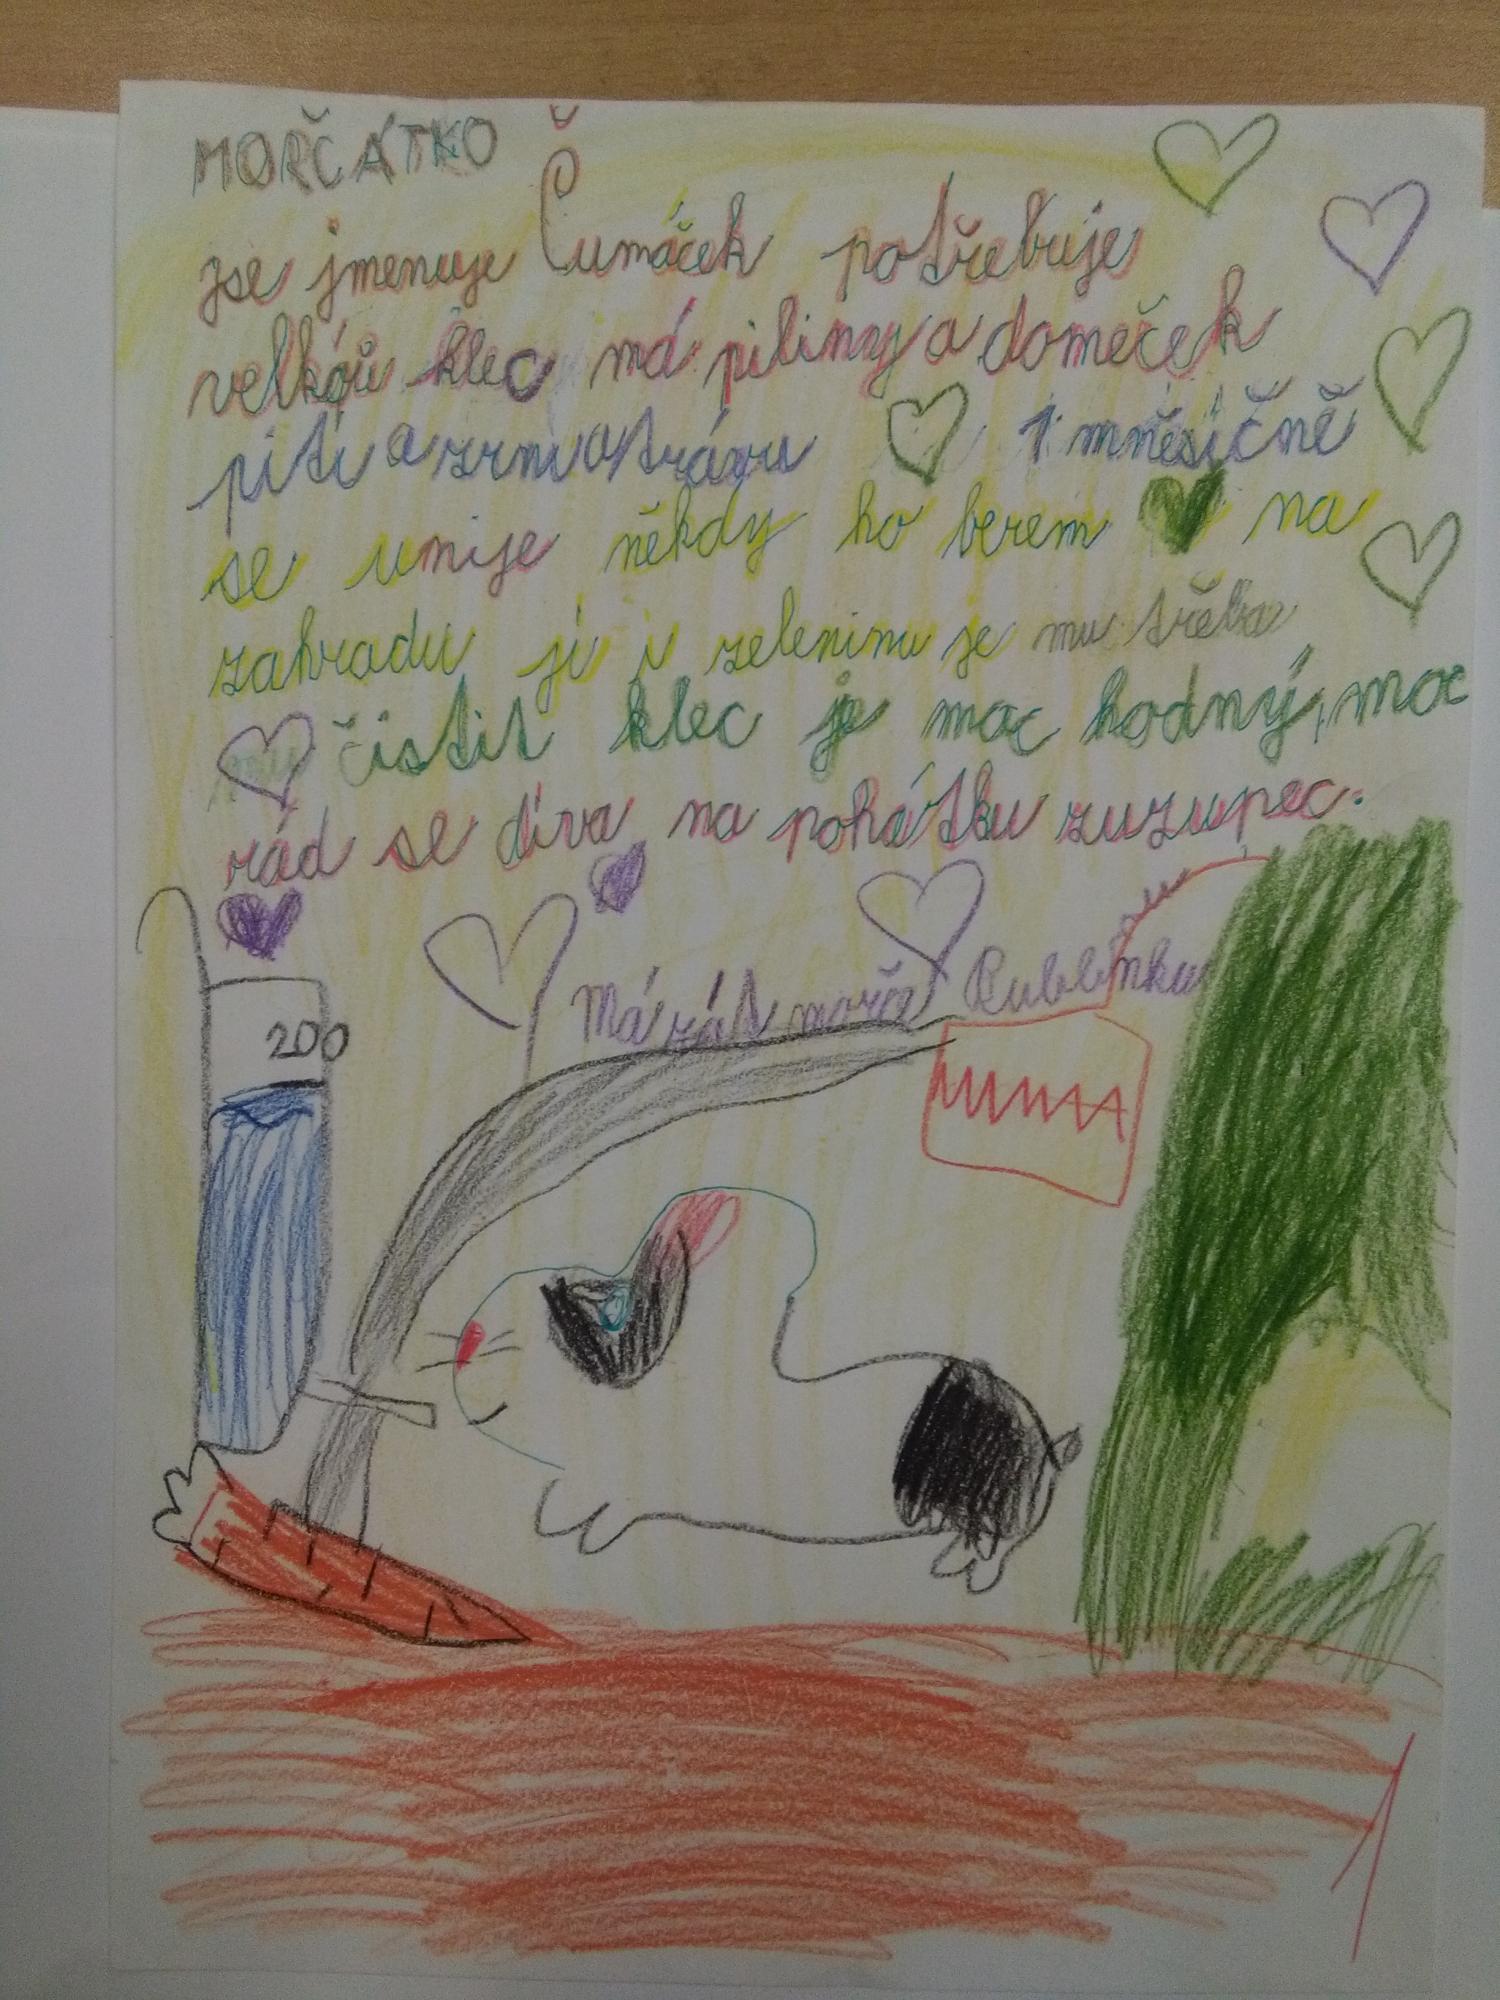 MORČÁTKO
se jmenuje Čumáček potřebuje
velkoů klec má piliny a domeček
pití a zrní a trávu 1 mněsíčně
se umije někdy ho berem na
zahradu jí i zeleninu je mu třeba
čistit klec je moc hodný, moc
rád se díva na pohátku zuzupec.
Má rát morče Bublinku
200
1